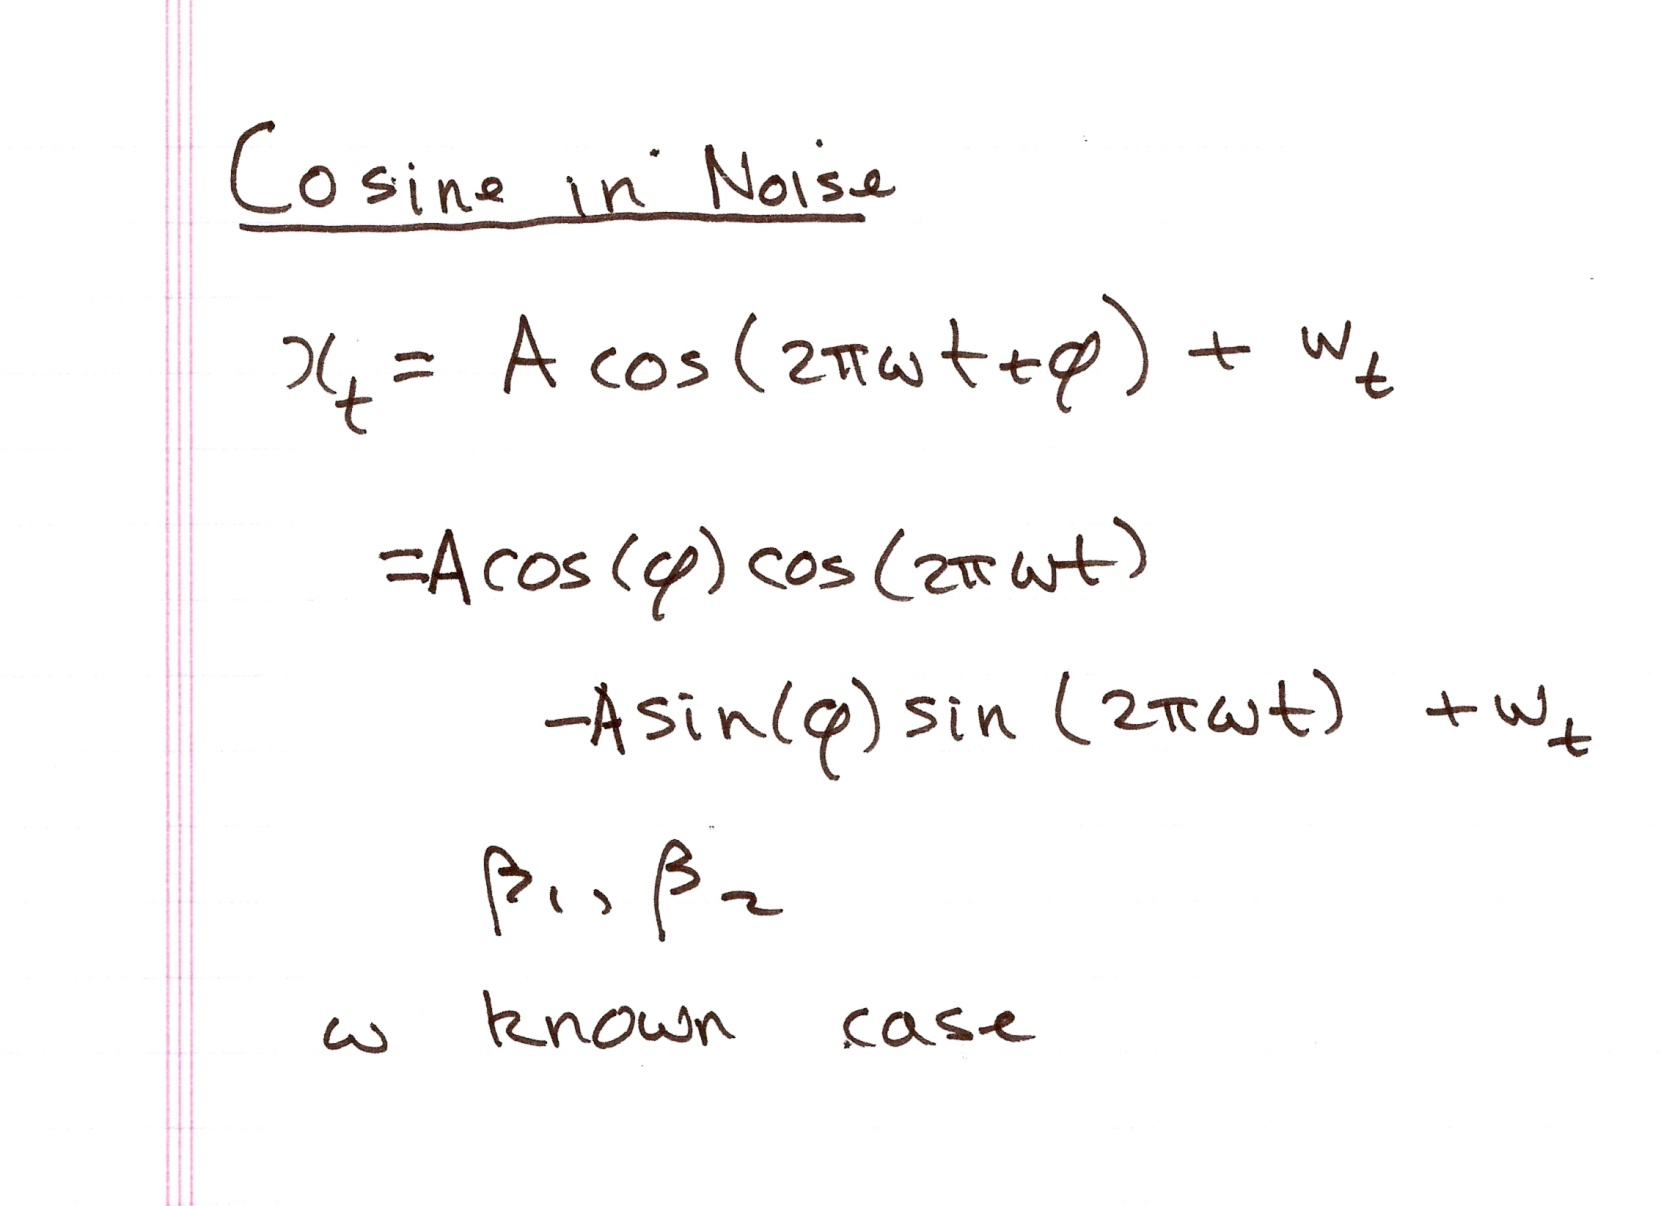 Cosine in Noise
x_t = A cos(2πωt+φ) + w_t
=A cos(φ) cos(2πωt)
-A sin(φ) sin(2πωt) +w_t
β_1, β_2
ω known case